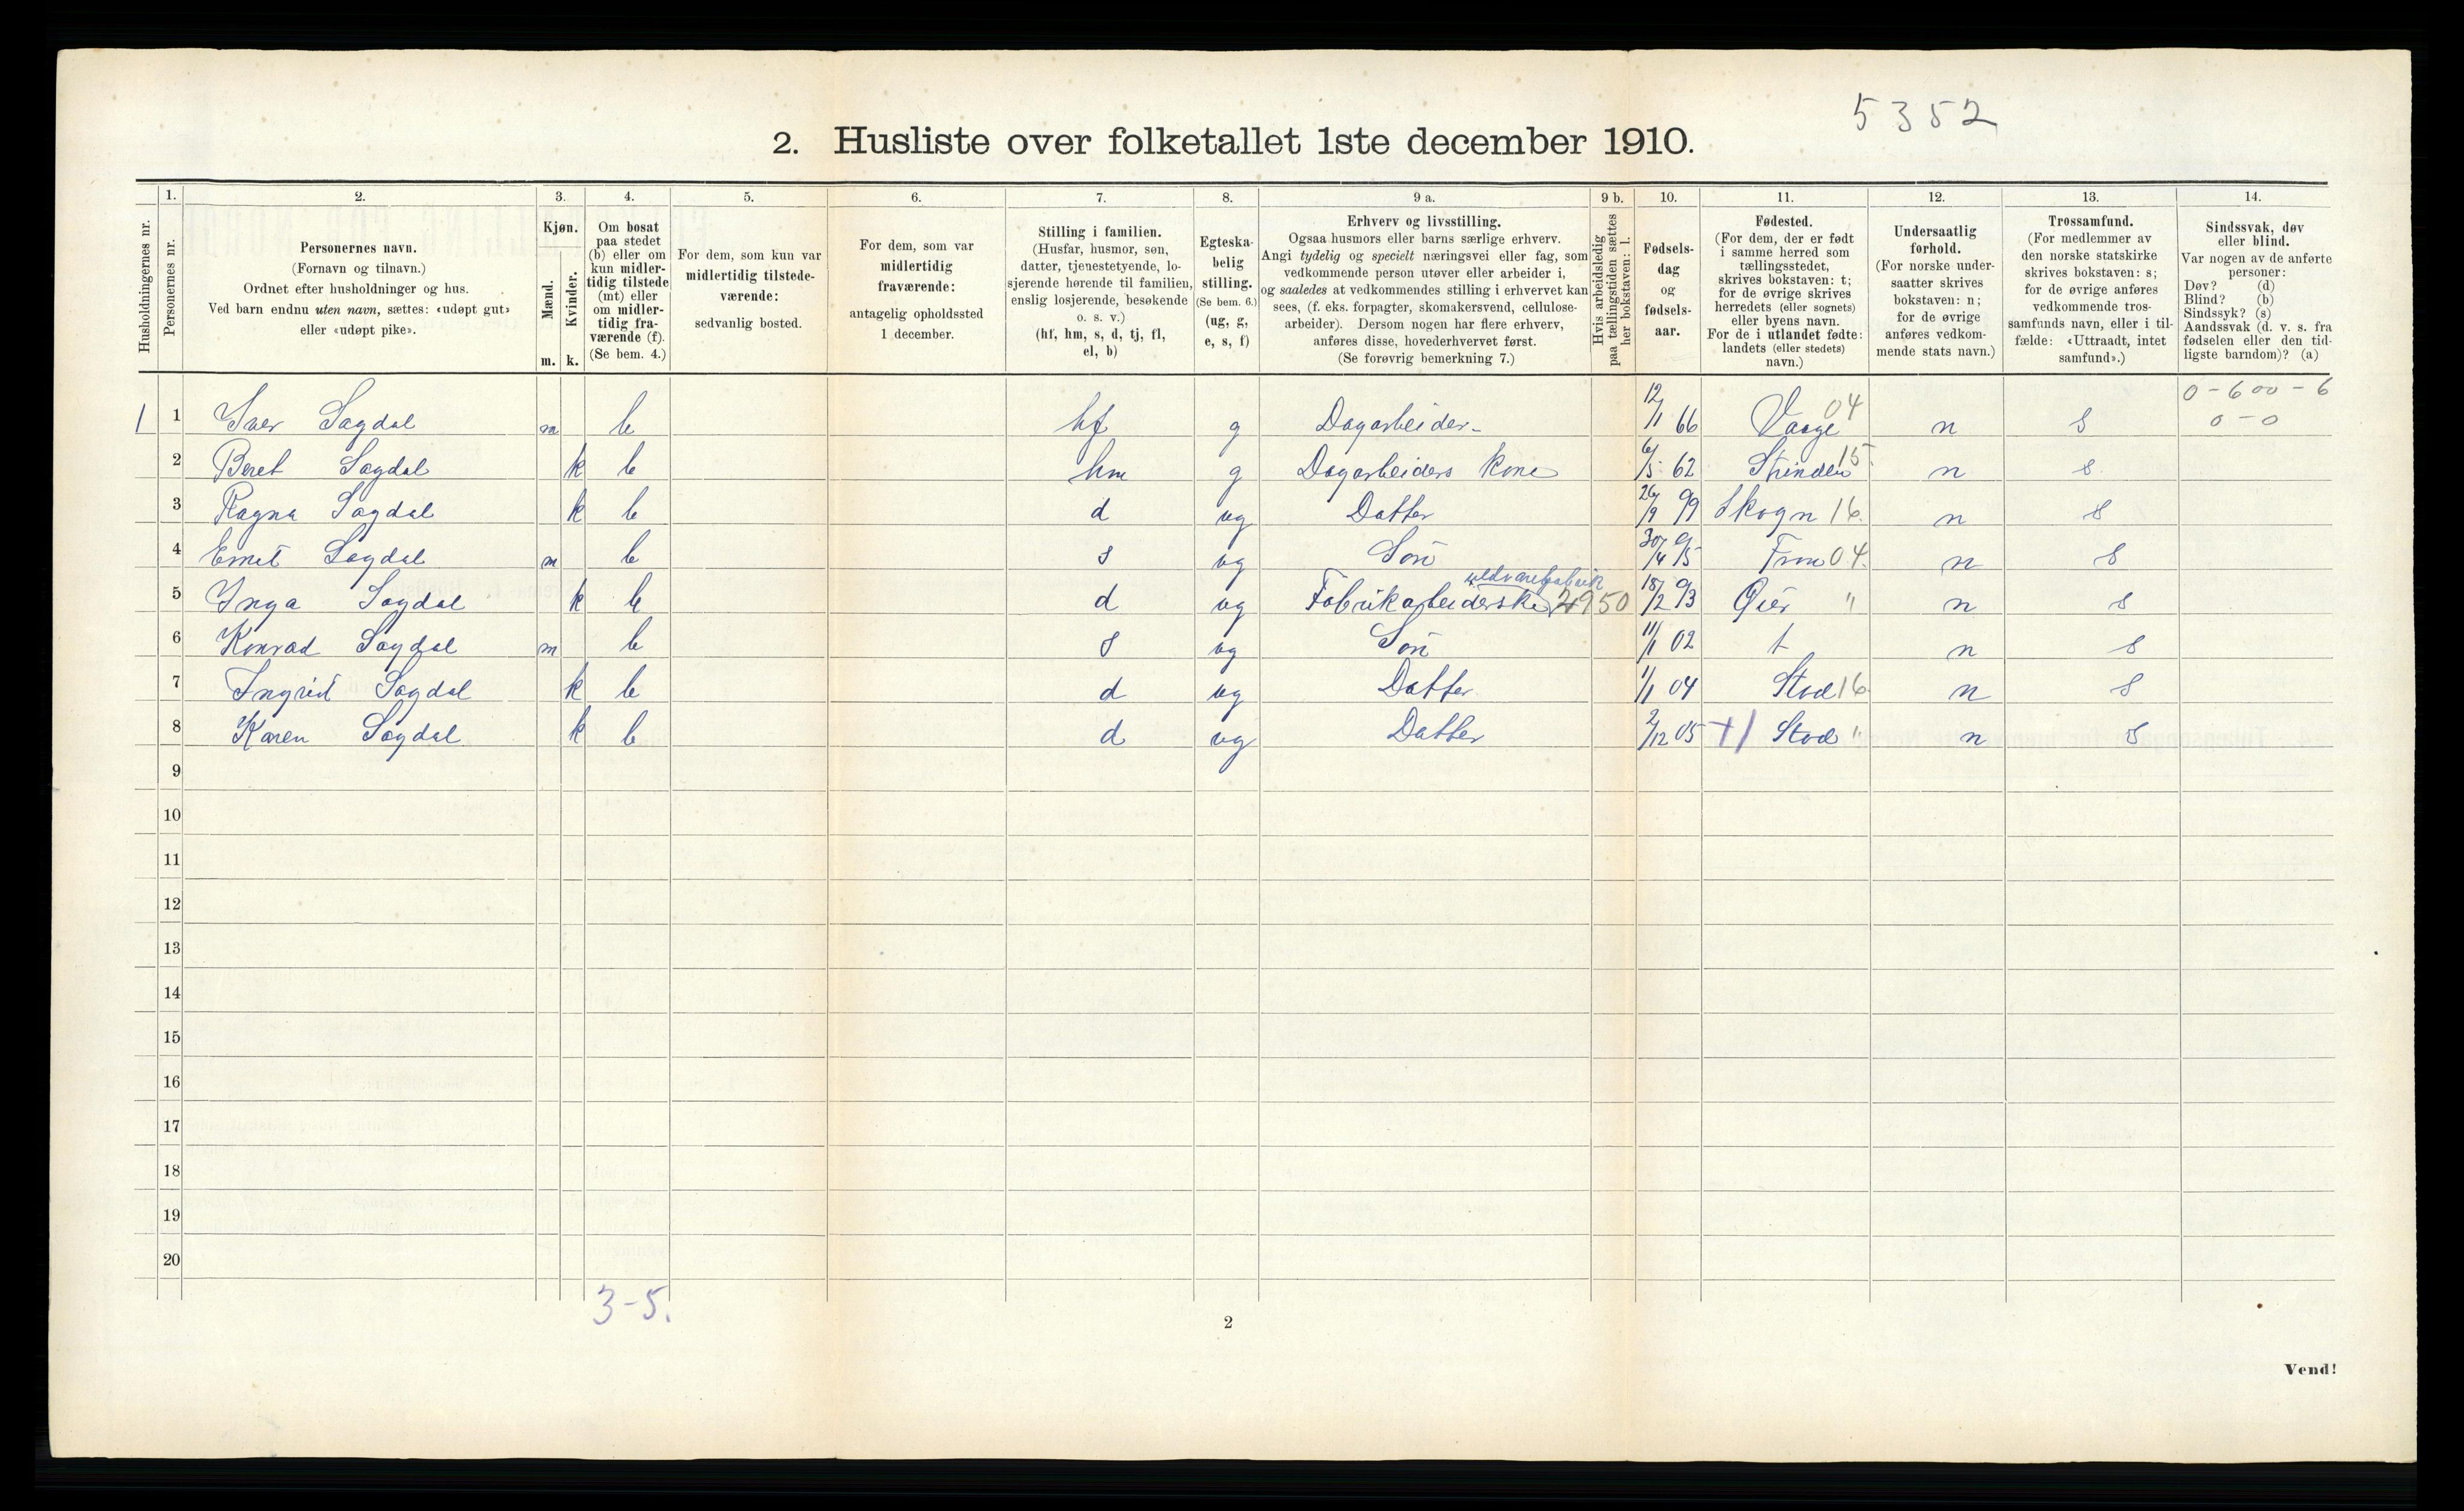 5352
2. Husliste over folketallet 1ste december 1910.
Husholdningernes nr.
1.
Personernes nr.
2.
Personernes navn.
(Fornavn og tilnavn.)
Ordnet efter husholdninger og hus.
Ved barn endnu uten navn, sættes: «udøpt gut»
eller «udøpt pike».
3.
Kjøn.
Mænd.
m.
Kvinder.
k.
4.
Om bosat
paa stedet
(b) eller om
kun midler-
tidig tilstede
(mt) eller
om midler-
tidig fra-
værende (f).
(Se bem. 4.)
5.
For dem, som kun var
midlertidig tilstede-
værende:
sedvanlig bosted.
6.
For dem, som var
midlertidig
fraværende:
antagelig opholdssted
1 december.
7.
Stilling i familien.
(Husfar, husmor, søn,
datter, tjenestetyende, lo-
sjerende hørende til familien,
enslig losjerende, besøkende
o. s. v.)
(hf, hm, s, d, tj, fl,
el, b)
8.
Egteska-
belig
stilling.
(Se bem. 6.)
(ug, g,
e, s, f)
9 a.
Erhverv og livsstilling.
Ogsaa husmors eller barns særlige erhverv.
Angi tydelig og specielt næringsvei eller fag, som
vedkommende person utøver eller arbeider i,
og saaledes at vedkommendes stilling i erhvervet kan
sees, (f. eks. forpagter, skomakersvend, cellulose-
arbeider). Dersom nogen har flere erhverv,
anføres disse, hovederhvervet først.
(Se forøvrig bemerkning 7.)
9 b.
Hvis arbeidsledig
paa tællingstiden sættes
her bokstaven: l.
10.
Fødsels-
dag
og
fødsels-
aar.
11.
Fødested.
(For dem, der er født
i samme herred som
tællingsstedet,
skrives bokstaven: t;
for de øvrige skrives
herredets (eller sognets)
eller byens navn.
For de i utlandet fødte:
landets (eller stedets)
navn.)
12.
Undersaatlig
forhold.
(For norske under-
saatter skrives
bokstaven: n;
for de øvrige
anføres vedkom-
mende stats navn.)
13.
Trossamfund.
(For medlemmer av
den norske statskirke
skrives bokstaven: s;
for de øvrige anføres
vedkommende tros-
samfunds navn, eller i til-
fælde: «Uttraadt, intet
samfund».)
14.
Sindssvak, døv
eller blind.
Var nogen av de anførte
personer:
Døv? (d)
Blind? (b)
Sindssyk? (s)
Aandssvak (d. v. s. fra
fødselen eller den tid-
ligste barndom)? (a)
1 1 Iver Sagdal m b hf g Dagarbeider 12/1 66 Vaage 04 n s 0-600-6 0-0
2 Beret Sagdal k b hm g Dagarbeiders kone 6/5 62 Strinden 15 n s
3 Ragna Sagdal k b d ug Datter 26/9 99 Skogn 16 n s
4 Emil Sagdal m b s ug Søn 30/4 95 Fron 04 n s
5 Inga Sagdal k b d ug Fabrikarbeiderske uldvarefabrik 4950 18/2 93 Øier " n s
6 Konrad Sagdal m b s ug Søn 11/1 02 t n s
7 Ingrid Sagdal k b d ug Datter 1/1 04 Stod 16 n s
8 Karen Sagdal k b d ug Datter 2/12 05 Stod " n s
9
10
11
12
13
14
15
16
17
18
19
20
3-5.
2
Vend!